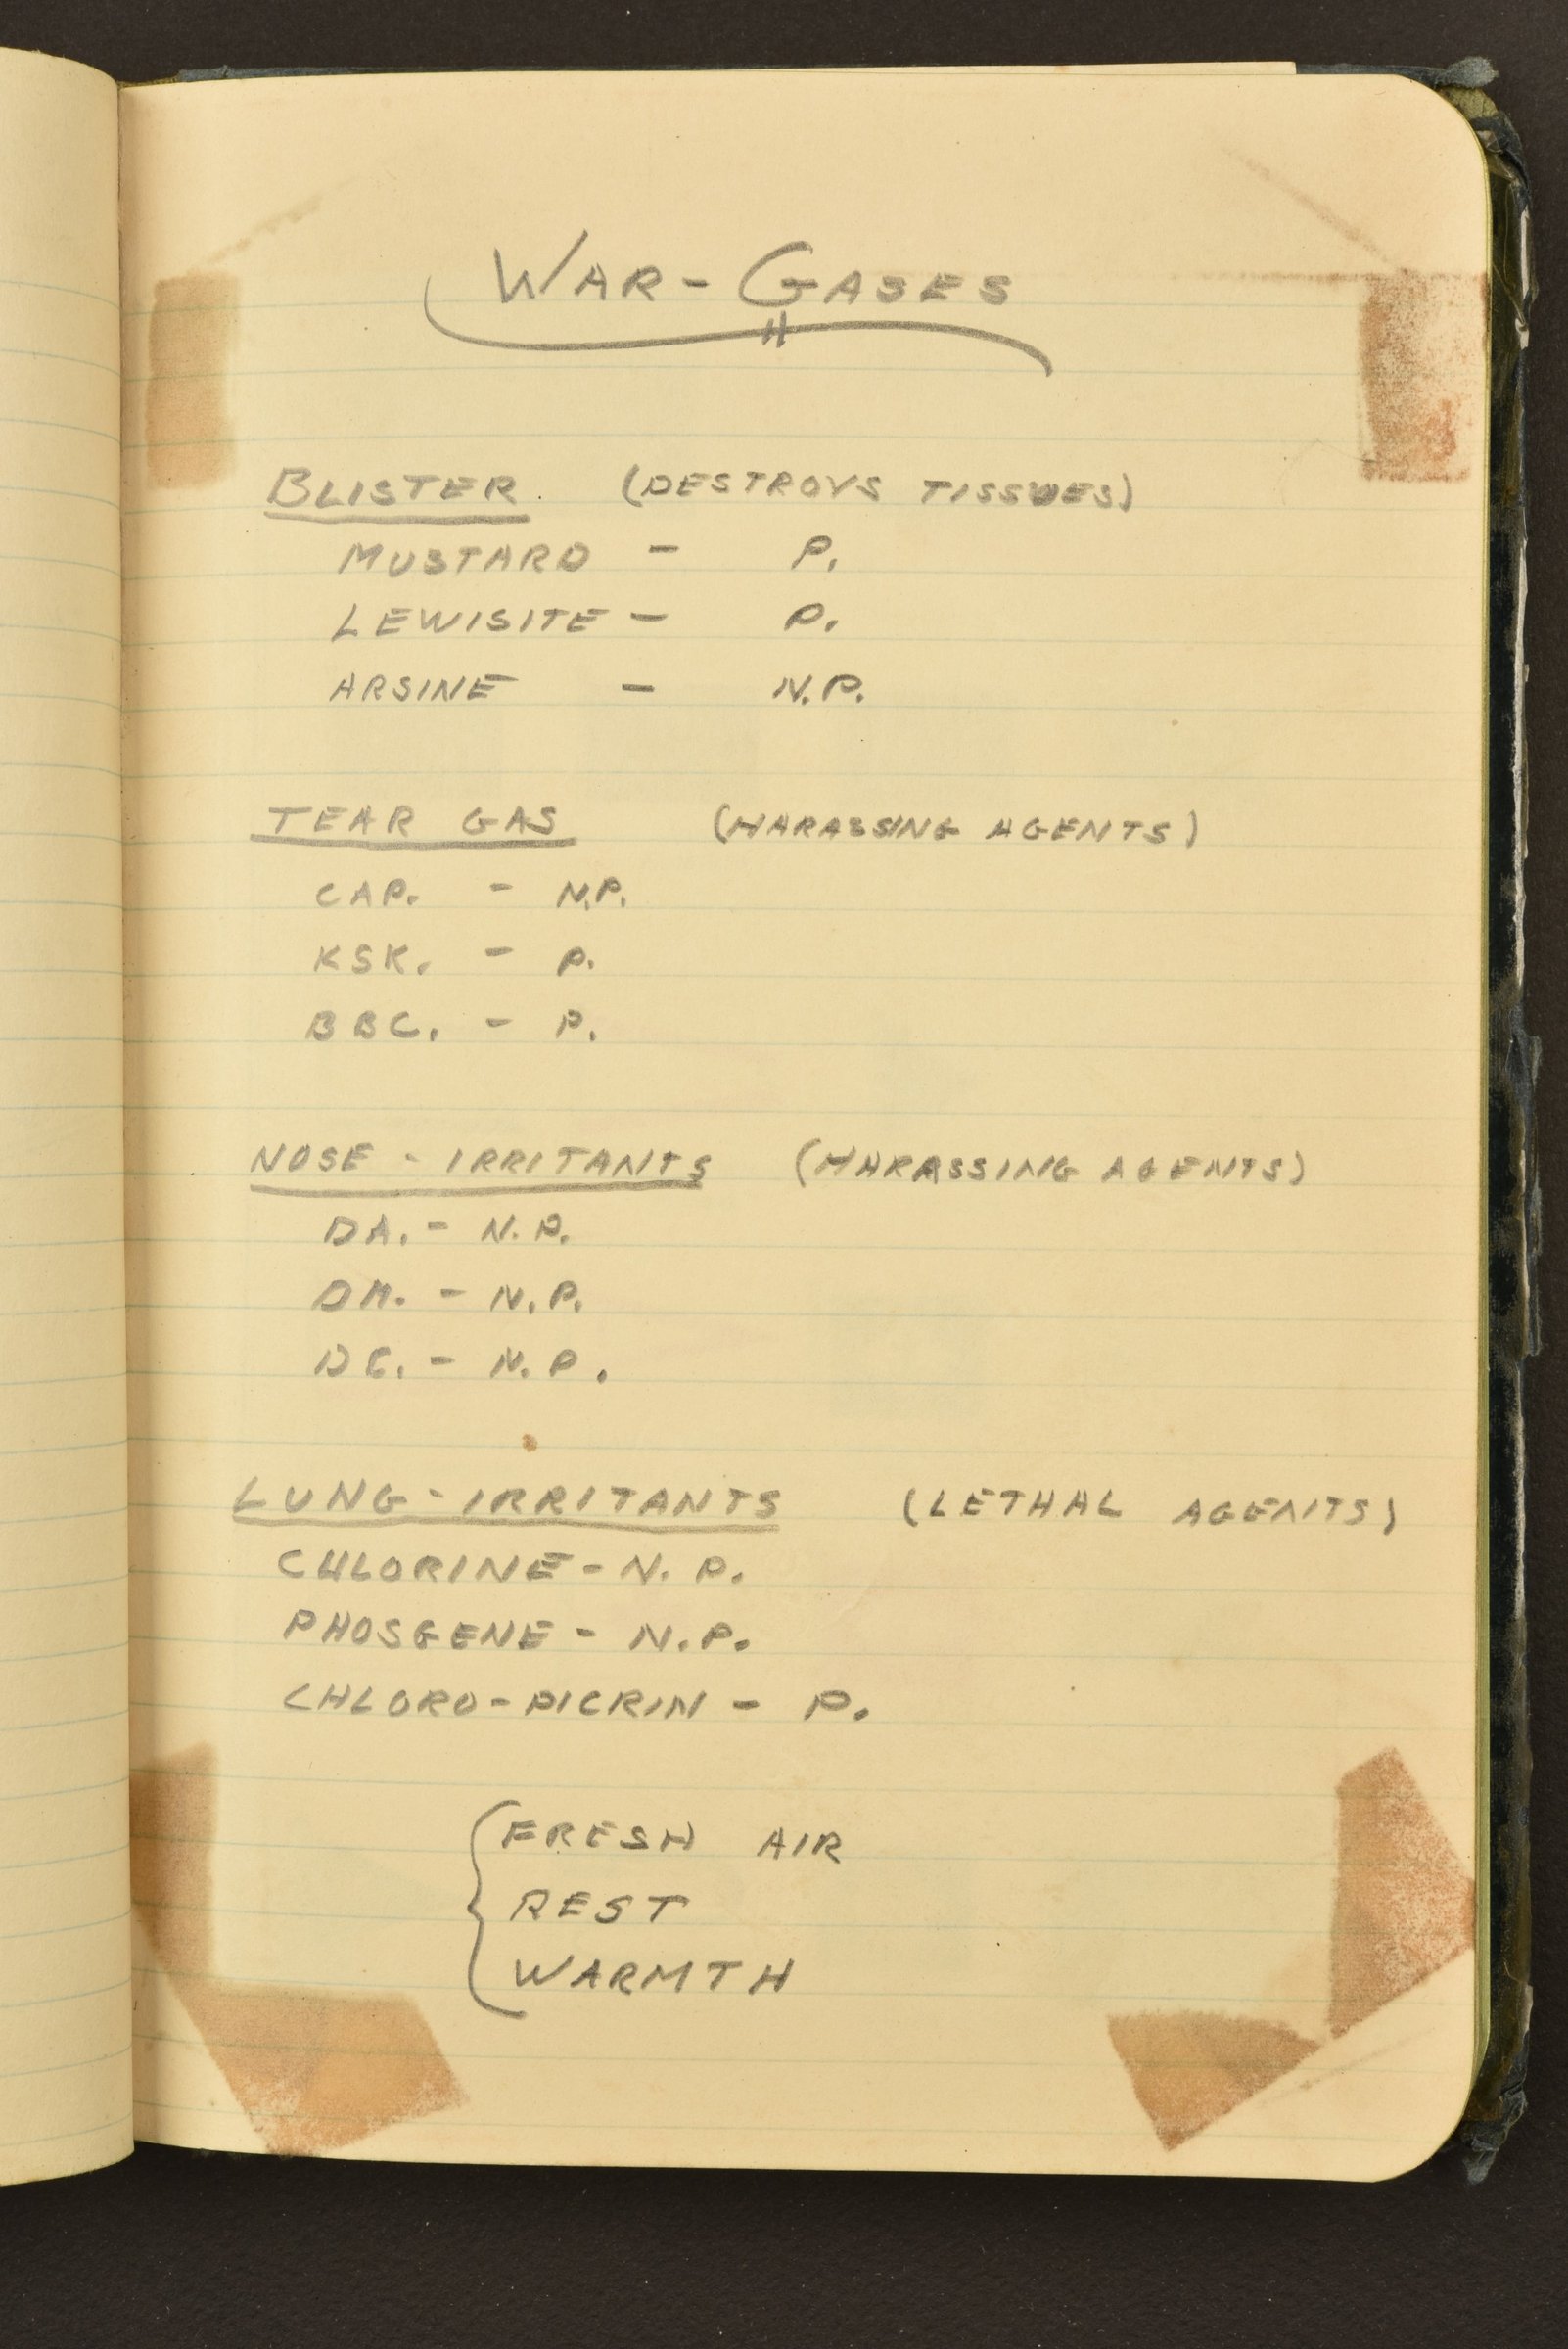 WAR - GASES
BLISTER. (DESTROYS TISSUES)
MUSTARD - P.
LEWISITE - P.
ARSINE - N.P.
TEAR GAS (HARASSING AGENTS)
CAP. - N.P.
KSK. - P.
BBC. - P.
NOSE - IRRITANTS (HARASSING AGENTS)
DA. - N.P.
DM. - N.P.
DC. - N.P.
LUNG - IRRITANTS (LETHAL AGENTS)
CHLORINE - N.P.
PHOSGENE - N.P.
CHLORO-PICRIN - P.
FRESH AIR
REST
WARMTH